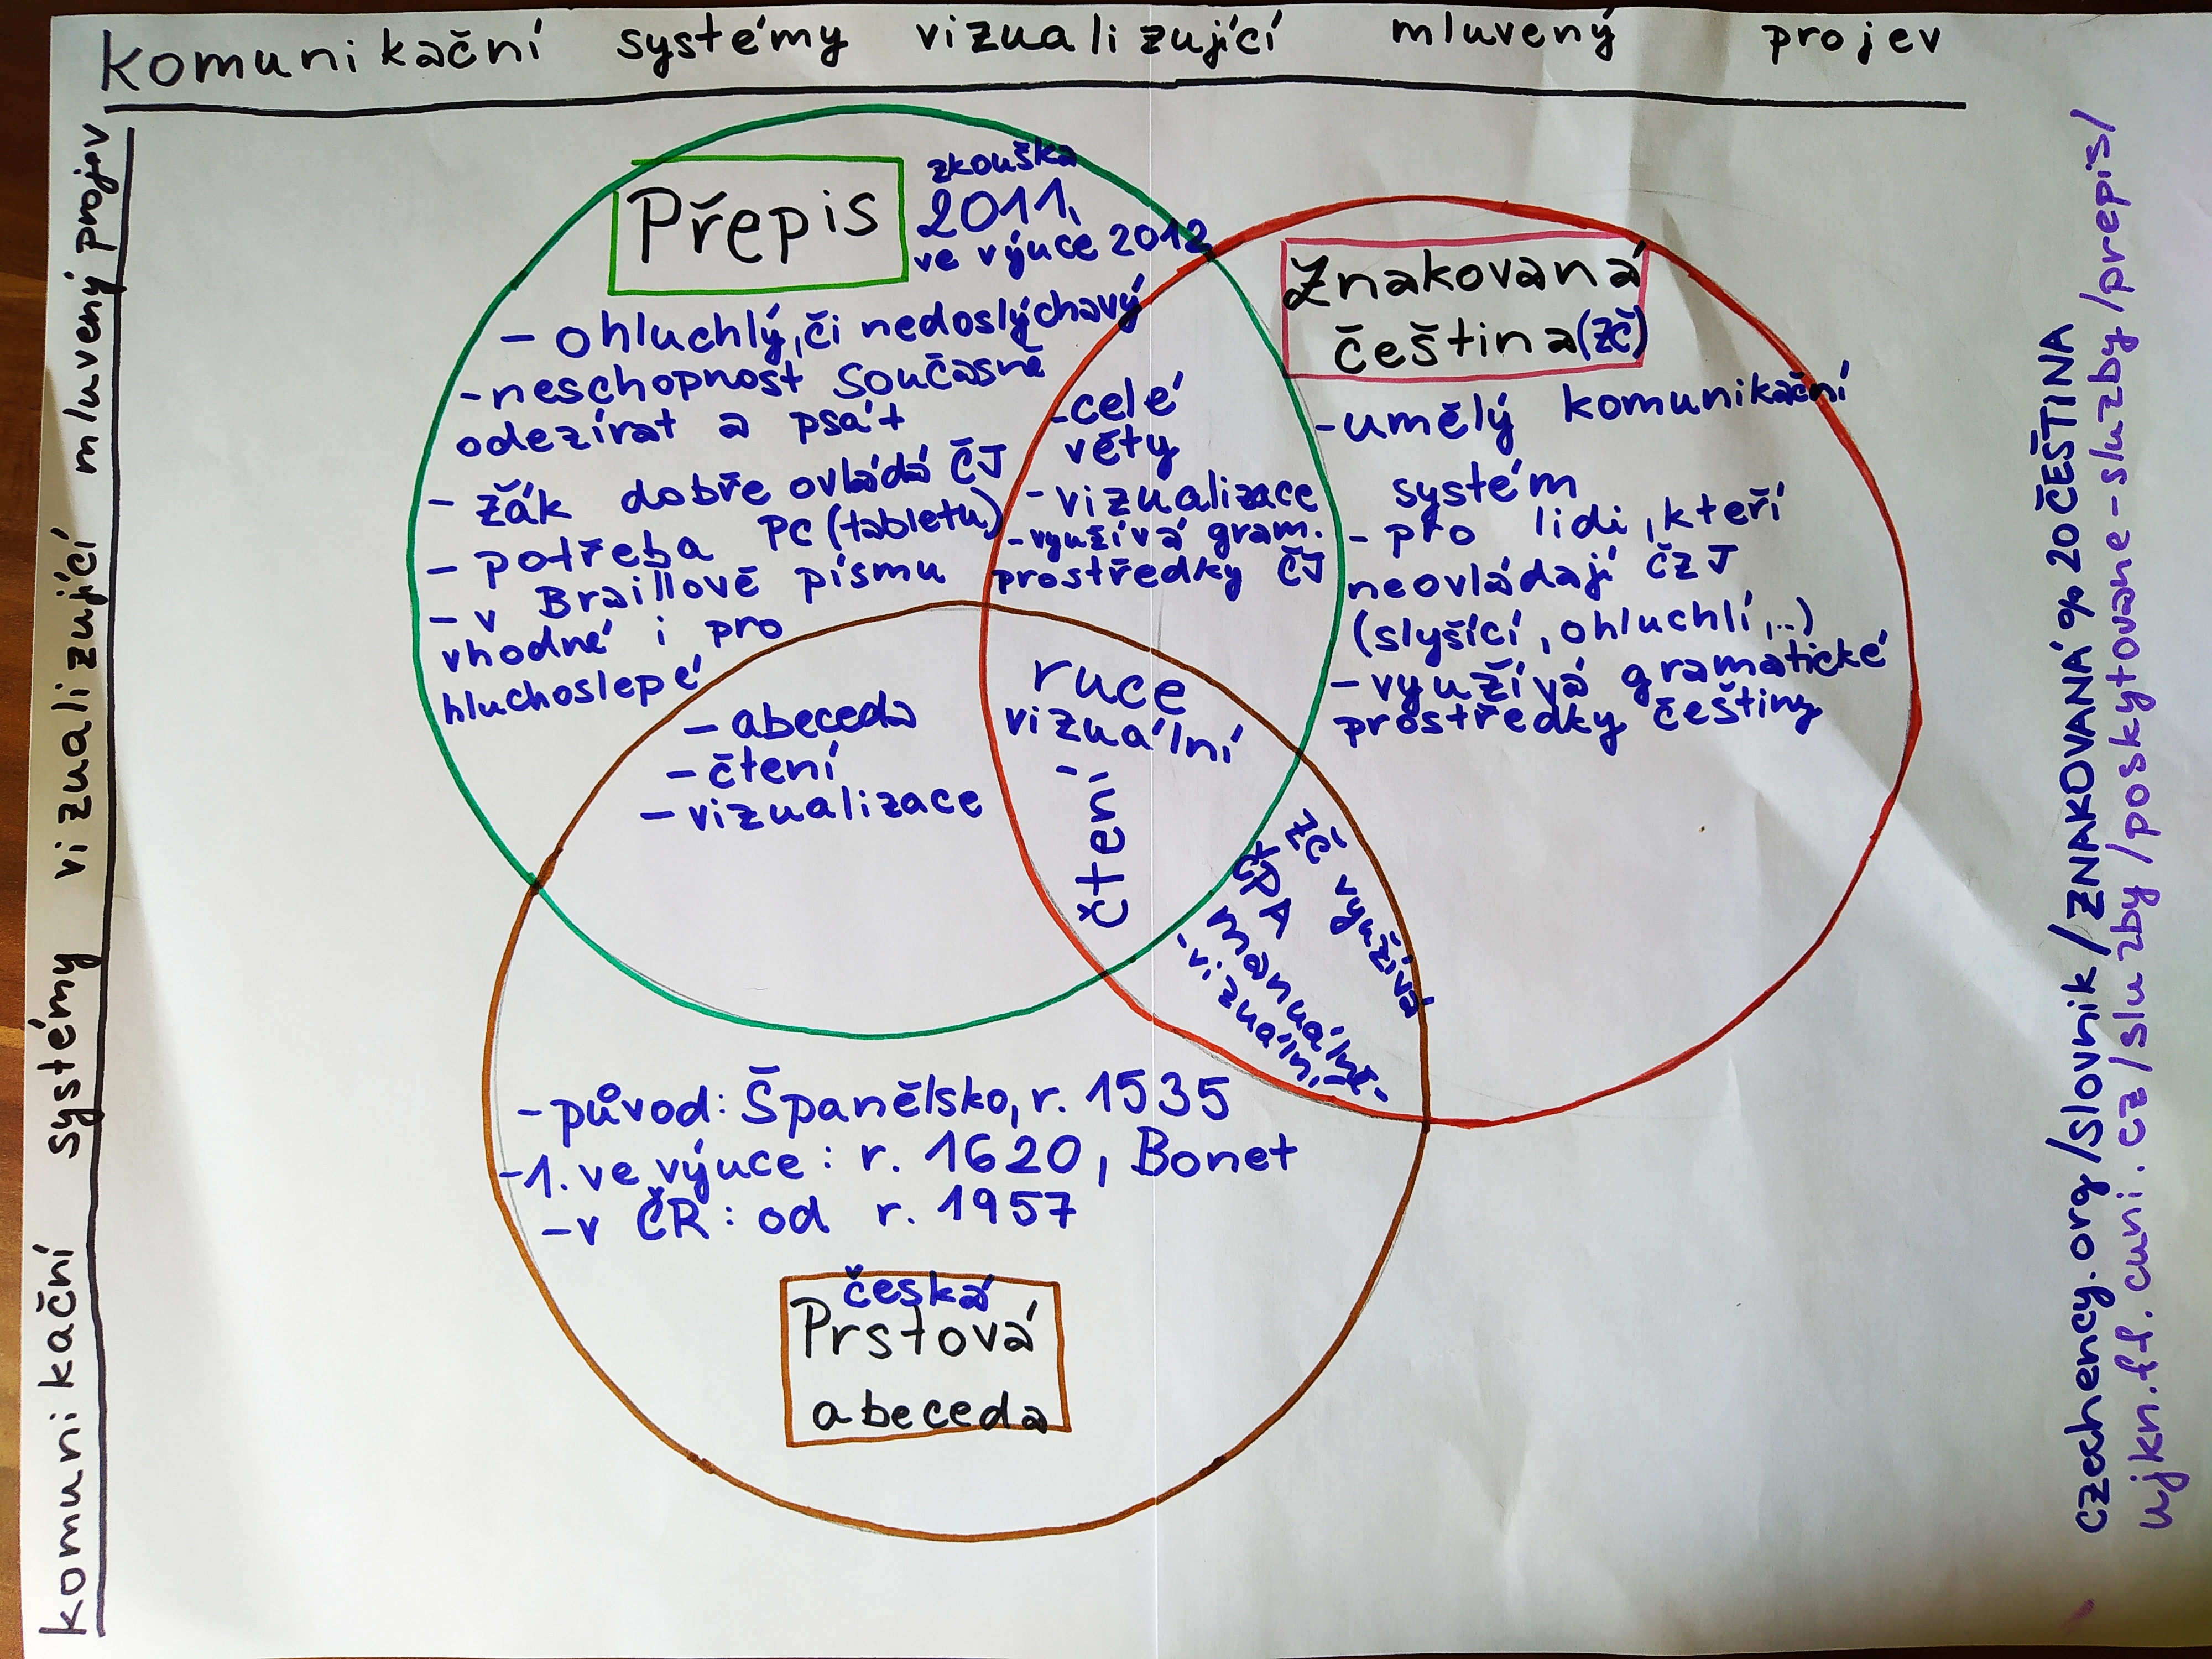 komunikační systémy vizualizující mluvený projev
Komunikační systémy vizualizující mluvený projev
Přepis
zkouška
2011,
ve výuce 2012
- Ohluchlý, či nedoslýchavý
- neschopnost současně
odezírat a psát
- žák dobře ovládá ČJ
- potřeba PC (tabletu)
- v Braillově písmu
vhodné i pro
hluchoslepé
- abeceda
- čtení
- vizualizace
- celé
věty
- vizualizace
- využívá gram.
prostředky ČJ
ruce
vizuální
čtení
Znakovaná
čeština (ZČ)
- umělý komunikační
systém
- pro lidi, kteří
neovládají ČZJ
(slyšící, ohluchlí, ...)
- využívá gramatické
prostředky češtiny
ZČ využívá
ČPA
- vizuálně
- původ: Španělsko, r. 1535
- 1. ve výuce: r. 1620, Bonet
- v ČR: od r. 1957
česká
Prstová
abeceda
czechency.org/slovnik/ZNAKOVANÁ%20ČEŠTINA
ujkn.ff.cuni.cz/sluzby/poskytovane-sluzby/prepis/